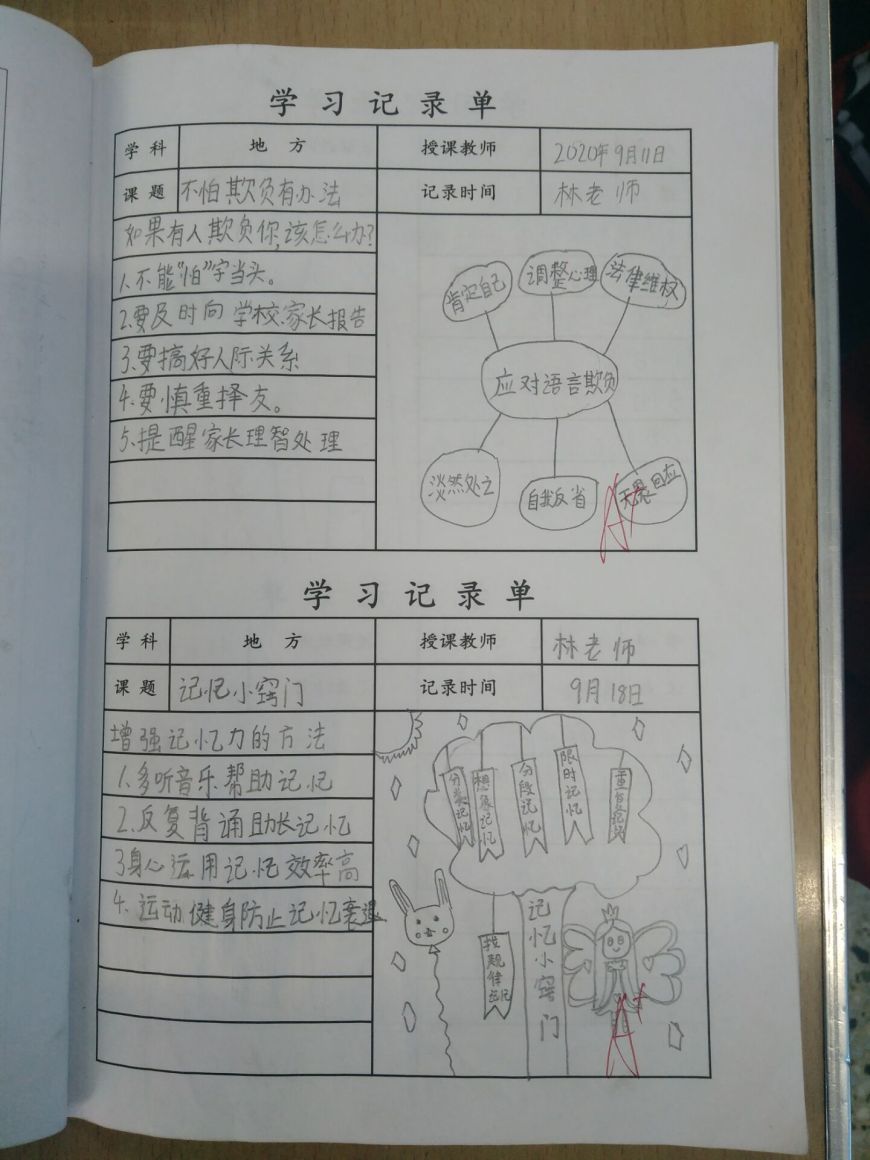 学习记录单
学科 地方 授课教师 2020年9月11日
课题 不怕欺负有办法 记录时间 林老师
如果有人欺负你,该怎么办?
1.不能"怕"字当头。
2.要及时向学校、家长报告
3.要搞好人际关系
4.要慎重择友。
5.提醒家长理智处理
肯定自己
调整心理
法律维权
应对语言欺负
淡然处之
自我反省
无畏回应
A+
学习记录单
学科 地方 授课教师 林老师
课题 记忆小窍门 记录时间 9月18日
增强记忆力的方法
1.多听音乐帮助记忆
2.反复背诵助长记忆
3身心运用记忆效率高
4.运动健身防止记忆衰退
分类记忆
想象记忆
分段记忆
限时记忆
找规律记忆
记忆小窍门
A+